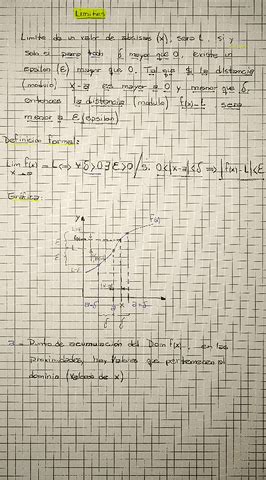 Limites
Limite de un valor de abscisas (x), sera L. si y
solo si para todo δ mayor que 0, existe un
epsilon (ε) mayor que 0. Tal que si la distancia
(modulo) x-a es mayor a 0 y menor que δ,
entonces la distancia (modulo) f(x)-L sera
menor a ε (epsilon)
Definicion formal:
Lim f(x) = L ⟺ ∀ δ>0 ∃ ε>0 / si 0<|x-a|<δ ⟹ |f(x)-L|<ε
x→a
Gráfica:
y
F(x)
L+ε
L
L-ε
ε
ε
a-δ a x a+δ
δ δ
a = Punto de acumulación del Dom f(x). en las
proximidades, hay Valores que pertenecen al
dominio (Valores de x)